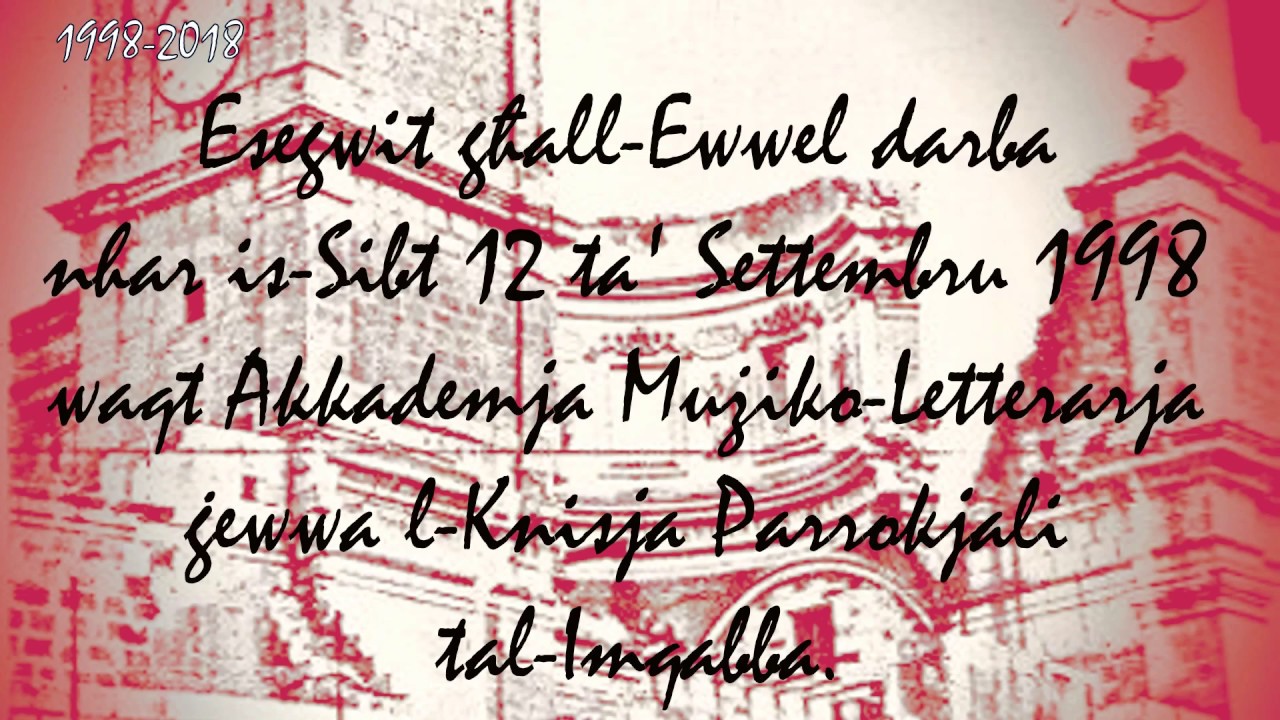 1998-2018
Esegwit għall-Ewwel darba
nhar is-Sibt 12 ta' Settembru 1998
waqt Akkademja Muziko-Letterarja
gewwa l-Knisja Parrokjali
tal-Imqabba.